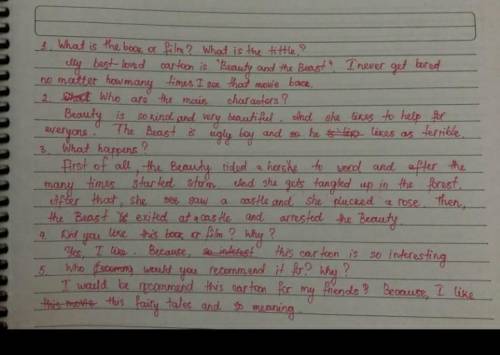 1. What is the book or film? What is the tittle?
My best-loved cartoon is "Beauty and the Beast". I never get bored
no matter how many times I see that movie bace.
2. Who are the main characters?
Beauty is so kind and very beautiful. And she likes to help for
everyone. The Beast is ugly boy and so he likes as terrible.
3. What happens?
First of all, the Beauty rided a horshe to word and after the
many times started storm. And she gets tangled up in the forest.
After that, she saw a castle and she plucked a rose. Then,
the Beast is exited at a castle and arrested the Beauty
4. Did you like this book or film? Why?
Yes, I like. Because, so interest this cartoon is so interesting
5. Who would you recommend it for? Why?
I would be recommend this cartoon for my friends? Because, I like
this movie this fairy tales and so meaning.